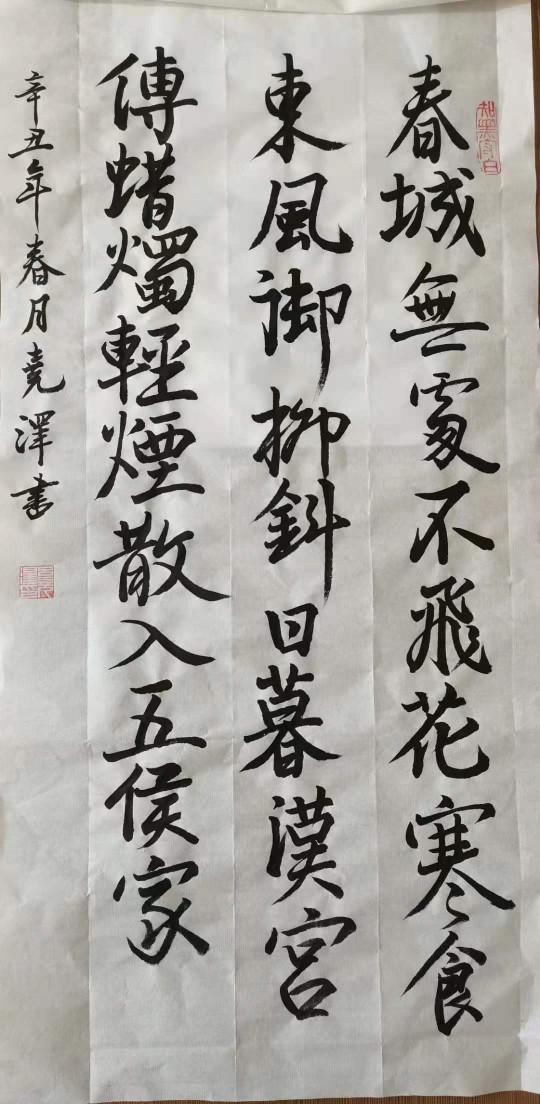 春城無處不飛花寒食
東風御柳斜日暮漢宮
傳蜡燭輕煙散入五侯家
辛丑年春月堯澤書